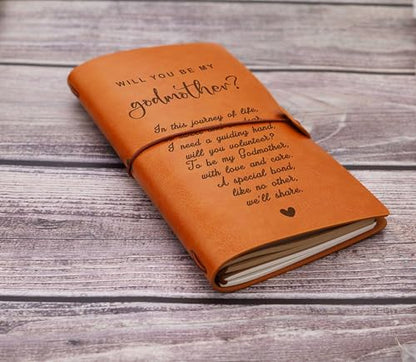 WILL YOU BE MY
godmother?
In this journey of life,
I need a guiding hand,
will you volunteer?
To be my Godmother,
with love and care.
A special bond,
like no other,
we'll share.